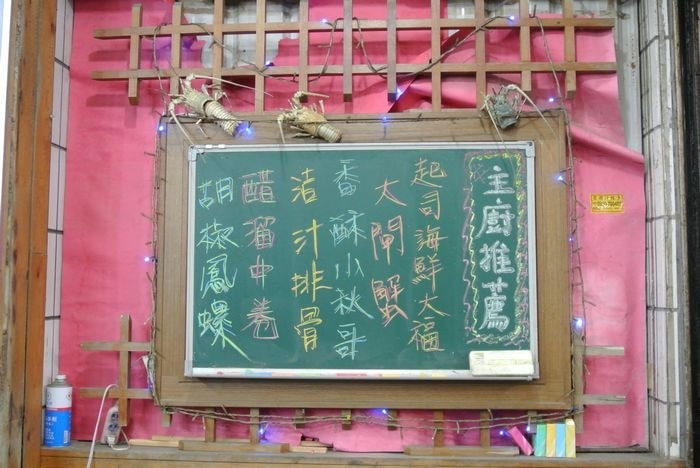 主廚推薦
起司海鮮大福
大閘蟹
香酥小秋哥
洁汁排骨
醋溜中卷
胡椒鳳螺